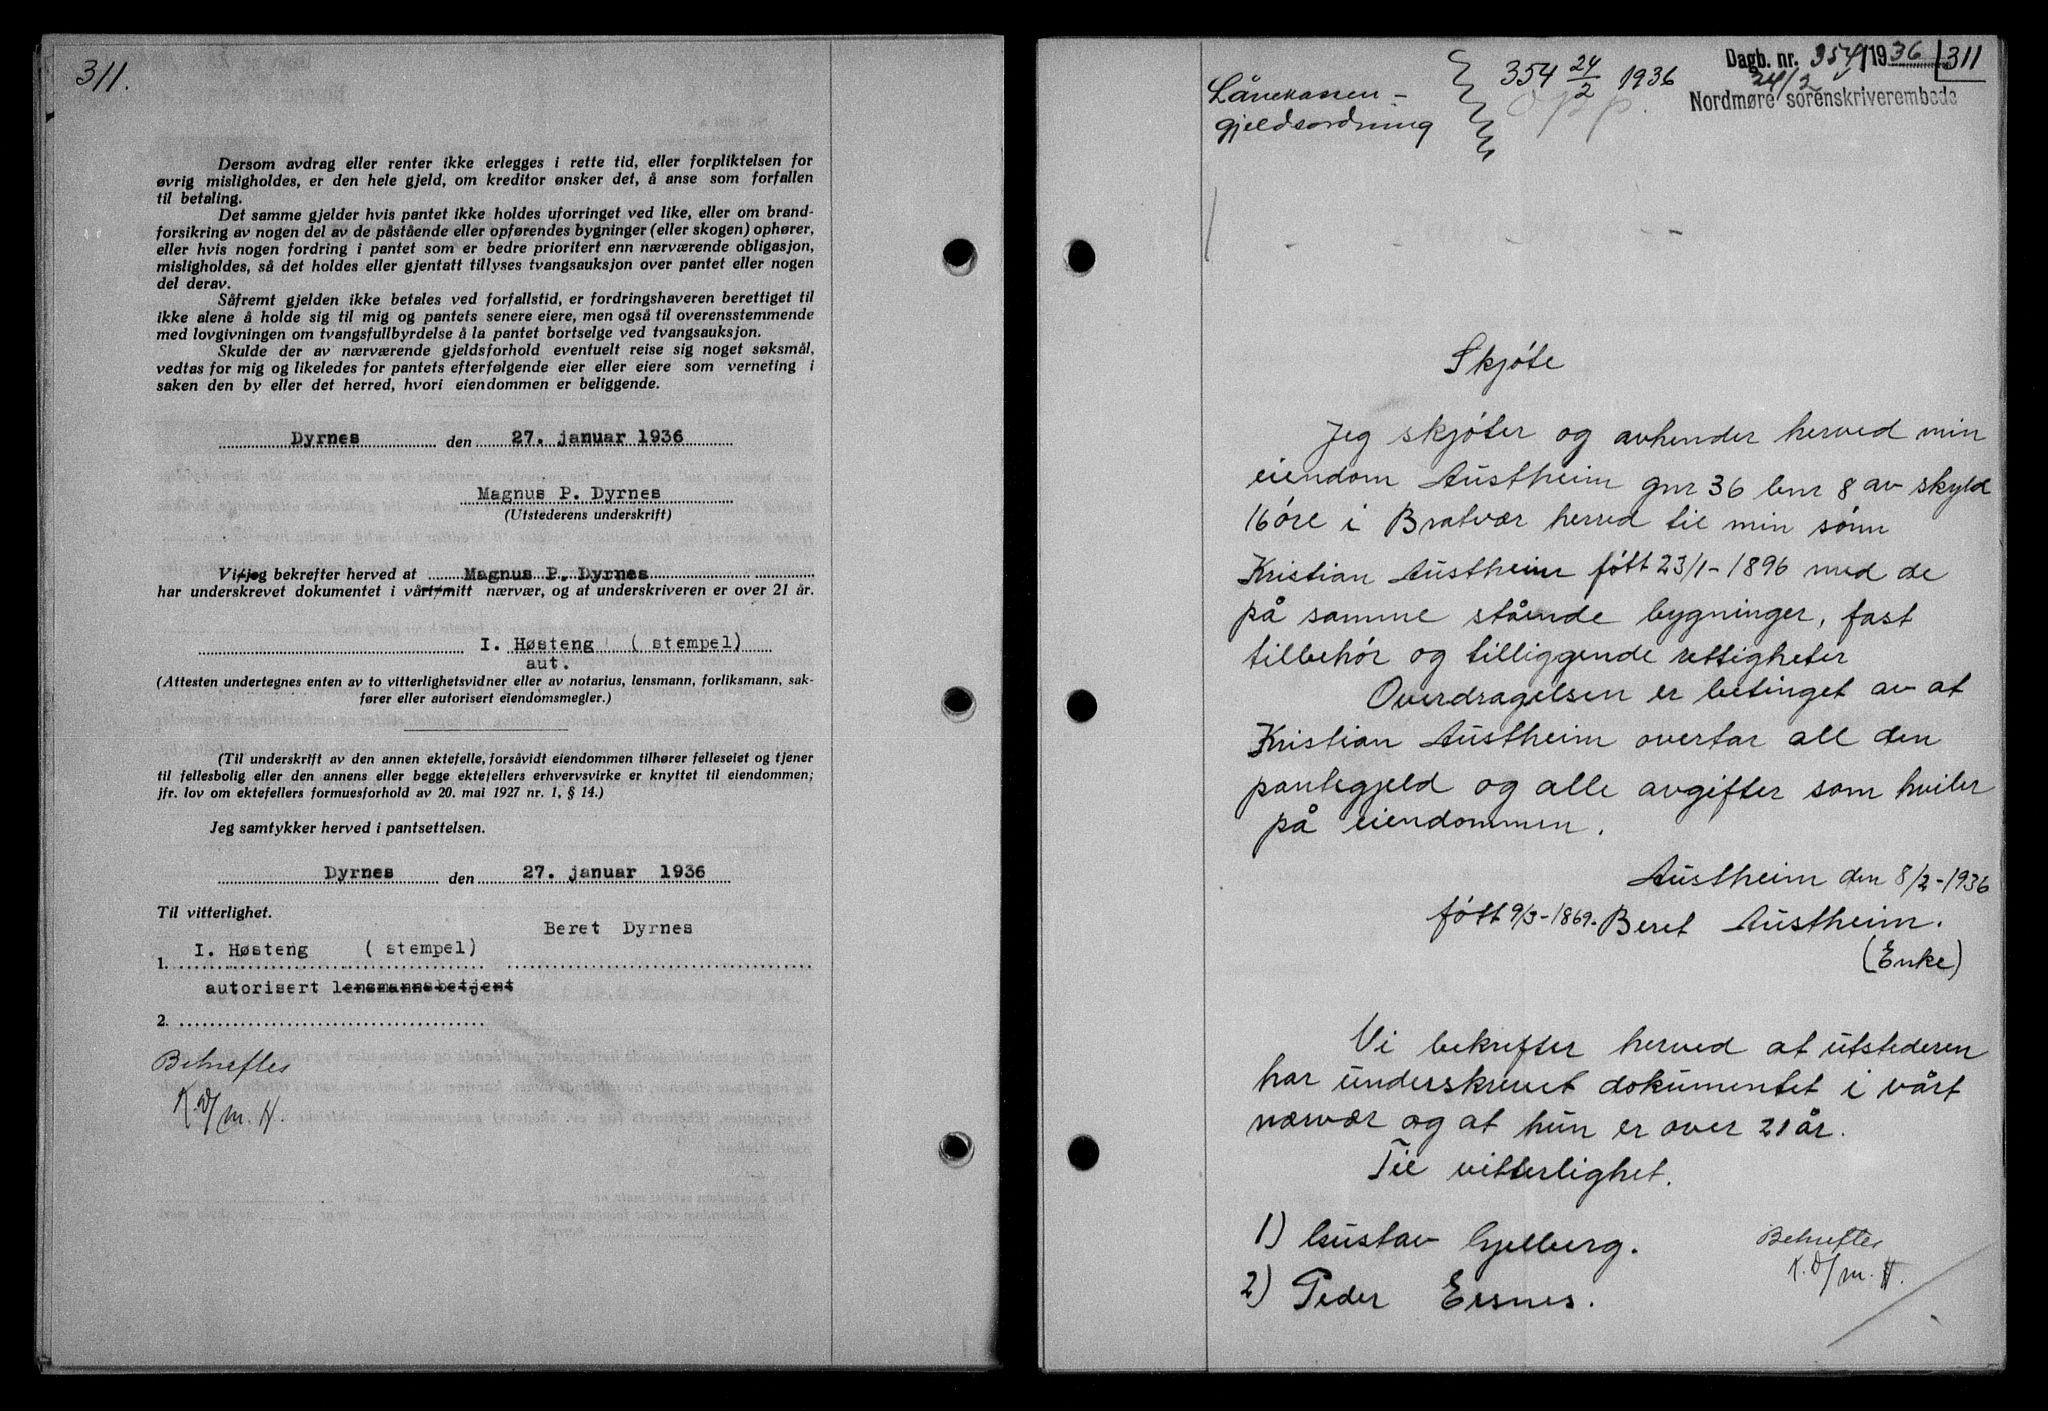 311.
Dersom avdrag eller renter ikke erlegges i rette tid, eller forpliktelsen for
øvrig misligholdes, er den hele gjeld, om kreditor ønsker det, å anse som forfallen
til betaling.
Det samme gjelder hvis pantet ikke holdes uforringet ved like, eller om brand-
forsikring av nogen del av de påstående eller opførendes bygninger (eller skogen) ophører,
eller hvis nogen fordring i pantet som er bedre prioritert enn nærværende obligasjon,
misligholdes, så det holdes eller gjentatt tillyses tvangsauksjon over pantet eller nogen
del derav.
Såfremt gjelden ikke betales ved forfallstid, er fordringshaveren berettiget til
ikke alene å holde sig til mig og pantets senere eiere, men også til overensstemmende
med lovgivningen om tvangsfullbyrdelse å la pantet bortselge ved tvangsauksjon.
Skulde der av nærværende gjeldsforhold eventuelt reise sig noget søksmål,
vedtas for mig og likeledes for pantets efterfølgende eier eller eiere som verneting i
saken den by eller det herred, hvori eiendommen er beliggende.
Dyrnes den 27. januar 1936
Magnus P. Dyrnes
(Utstederens underskrift)
Vi/jeg bekrefter herved at Magnus P. Dyrnes
har underskrevet dokumentet i vårt/mitt nærvær, og at underskriveren er over 21 år.
I. Høsteng ( stempel)
aut.
(Attesten undertegnes enten av to vitterlighetsvidner eller av notarius, lensmann, forliksmann, sak-
fører eller autorisert eiendomsmegler.)
(Til underskrift av den annen ektefelle, forsåvidt eiendommen tilhører felleseiet og tjener
til fellesbolig eller den annens eller begge ektefellers erhvervsvirke er knyttet til eiendommen;
jfr. lov om ektefellers formuesforhold av 20. mai 1927 nr. 1, § 14.)
Jeg samtykker herved i pantsettelsen.
Dyrnes den 27. januar 1936
Til vitterlighet.
Beret Dyrnes
1. I. Høsteng ( stempel)
autorisert lensmannsbetjent
2.
Bekreftes
K. D/m. H.
Dagb. nr. 354/1936 311
24/2
Nordmøre sorenskriverembede
Lånekassen - 354 24/2 1936
gjeldsordning opp.
Skjøte
Jeg skjøter og avhender herved min
eiendom Austheim gnr 36 bnr 8 av skyld
16 øre i Bratvær herred til min sønn
Kristian Austheim født 23/1-1896 med de
på samme stående bygninger, fast
tilbehør og tilliggende rettigheter
Overdragelsen er betinget av at
Kristian Austheim overtar all den
pantegjeld og alle avgifter som hviler
på eiendommen.
Austheim den 8/2-1936
født 9/3-1869. Beret Austheim.
(Enke)
Vi bekrefter herved at utstederen
har underskrevet dokumentet i vårt
nærvær og at hun er over 21 år.
Til vitterlighet.
1) Gustav Gjelberg.
2) Peder Ersnes.
Bekreftes
K. D/m. H.